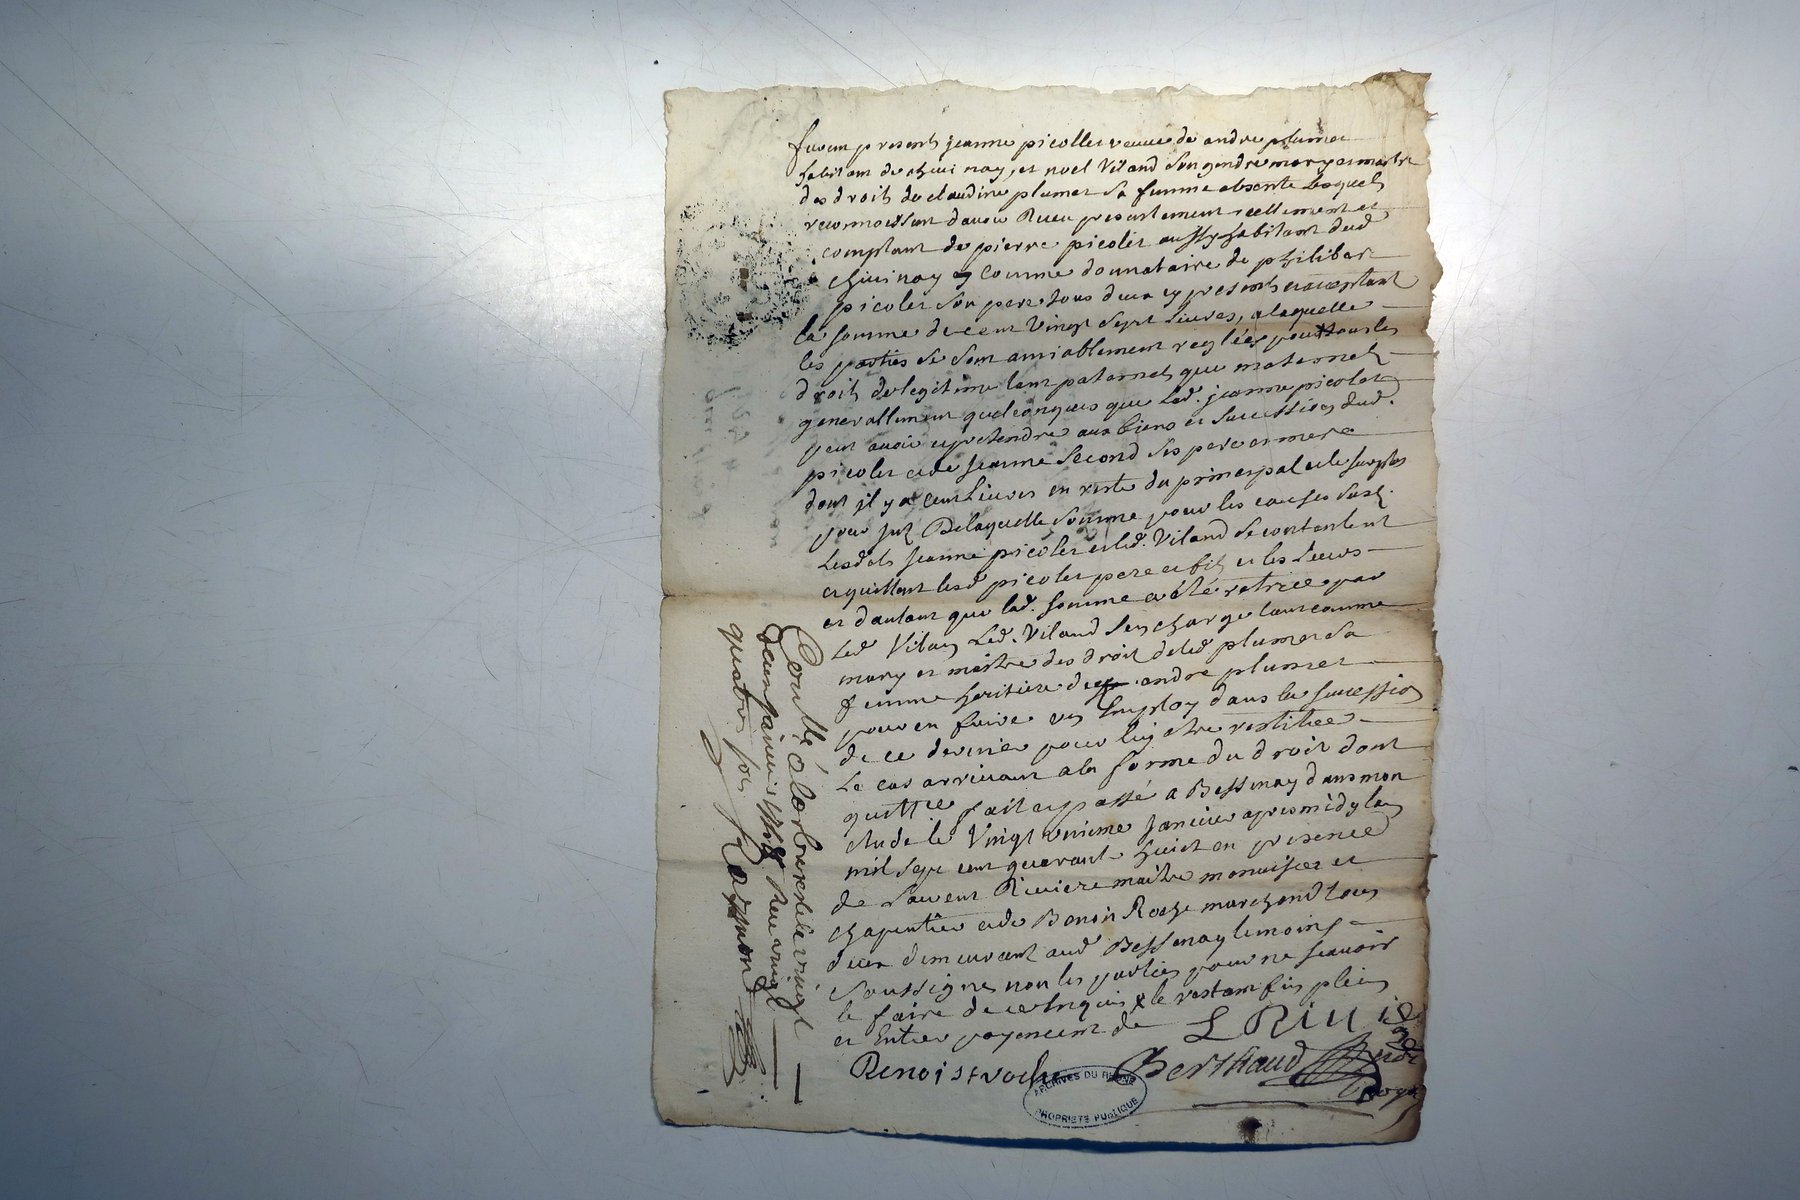 furent presents jeanne picollet veuve de andre plumet
habitant de chivinay, et noel Viland son gendre mary et maistre
des droits de claudine plumet sa femme absente Lesquels
reconnoissent davoir Receu presentement reellement et
comptant de pierre picolet aussy habitant dud
chivinay comme donnataire de philibert
picolet son pere tous deux cy presents et acceptant
la somme de cent Vingt Sept Livres, a laquelle
les parties se sont amiablement reglées pour tous les
droits de legitime tant paternels que maternels
generallement quelconques que lad. jeanne picolet
peut avoir et pretendre aux biens et succession dud.
picolet et de jeanne Second ses pere et mere
dont il y a cent Livres en reste du principal et le surplus
pour De laquelle somme pour les causes susd.
Lesdts jeanne picolet et led. Viland se contentent
et quittent lesd picolet pere et fils et les Leurs
et d'autant que lad. somme a été retirée par
Led Viland Led. Viland s'en charge tant comme
mary et maitre des droits de lad plumet sa
femme heritiere de andre plumet
pour en faire un Employ dans la succession
de ce dernier pour luy etre restituee
Le cas arrivant a la forme du droit dont
quittce fait et passé a Bessenay dans mon
etude le Vingt unieme janvier apres midy lan
mil sept cent quarante huict en presence
de Laurent Riviere maitre menuisier et
chapentier et de Benoit Roche marchand tous
deux demeurant aud Bessenay temoins
soussignes non les parties pour ne scavoir
le faire de ce Enquis le restant fin plein
et Entier payement de
L RIVI
Benoist roche
Berthaud
Roya
ARCHIVES DU RHONE
PROPRIETE PUBLIQUE
Controllé a larbresle le vingt
deux janvier 1748 Receu vingt
quatre sols